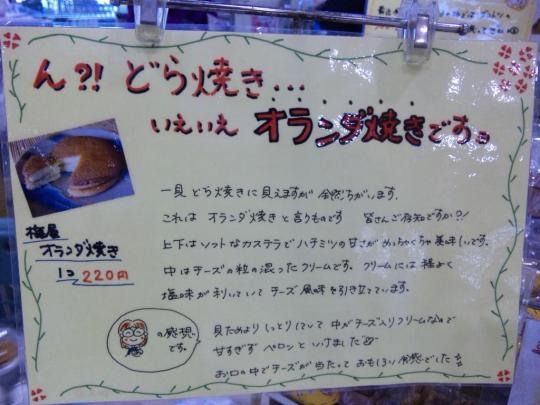 ん?!  どら焼き...
いえいえ オランダ焼きです。
一見 どら焼きに見えますが 全然ちがいます.
これは オランダ焼きと言うものです 皆さんご存知ですか?!
上下はソフトなカステラでハチミツの甘さがめっちゃくちゃ美味しいです.
中はチーズの粒の混ったクリームです. クリームには程よく
塩味が利いていて チーズ風味を引き立てています.
梅屋
オランダ焼き
1コ 220円
の感想です。
見ためより しっとりしていて 中がチーズ入りクリームなので
甘すぎず ペロンと いけました
お口の中でチーズが当たって おもしろい食感でした